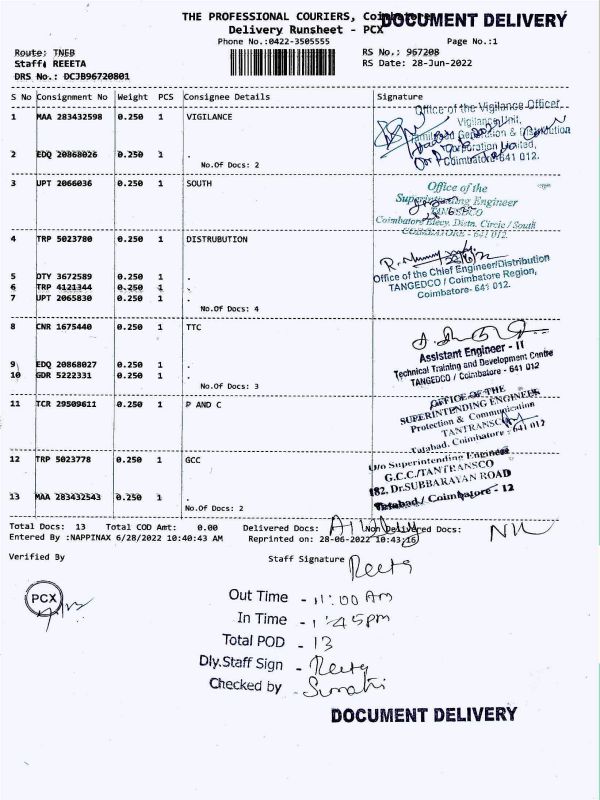 THE PROFESSIONAL COURIERS, Coimbatore
DOCUMENT DELIVERY
Delivery Runsheet - PCX
Phone No.:0422-3505555
Page No.:1
Route: TNEB
RS No.: 967208
Staff: REEETA
RS Date: 28-Jun-2022
DRS No.: DCJB96720801
S No Consignment No Weight PCS Consignee Details Signature
1 MAA 283432598 0.250 1 VIGILANCE
Office of the Vigilance Officer
Vigilance Unit,
Tamilnadu Generation & Distribution
Corporation Limited,
Coimbatore-641 012.
2 EDQ 20868026 0.250 1 .
No.Of Docs: 2
3 UPT 2066036 0.250 1 SOUTH
Office of the
Superintending Engineer
TANGEDCO
Coimbatore Elecy. Distn. Circle / South
COIMBATORE - 641 012.
4 TRP 5023780 0.250 1 DISTRUBUTION
5 DTY 3672589 0.250 1 .
6 TRP 4121344 0.250 1 .
7 UPT 2065830 0.250 1 .
Office of the Chief Engineer/Distribution
TANGEDCO / Coimbatore Region,
Coimbatore- 641 012.
No.Of Docs: 4
8 CNR 1675440 0.250 1 TTC
Assistant Engineer - II
Technical Training and Development Centre
TANGEDCO / Coimbatore - 641 012
9 EDQ 20868027 0.250 1 .
10 GDR 5222331 0.250 1 .
No.Of Docs: 3
11 TCR 29509611 0.250 1 P AND C
OFFICE OF THE
SUPERINTENDING ENGINEER
Protection & Communication
TANTRANSCO
Tatabad, Coimbatore - 641 012
12 TRP 5023778 0.250 1 GCC
O/o Superintending Engineer
G.C.C./TANTRANSCO
182, Dr.SUBBARAYAN ROAD
Tatabad / Coimbatore - 12
13 MAA 283432543 0.250 1 .
No.Of Docs: 2
Total Docs: 13 Total COD Amt: 0.00 Delivered Docs: Non Delivered Docs: Nil
Entered By :NAPPINAX 6/28/2022 10:40:43 AM Reprinted on: 28-06-2022 10:43:16
Verified By
Staff Signature Reeta
PCX
Out Time - 11:00 Am
In Time - 1:45pm
Total POD - 13
Dly.Staff Sign - Reeta
Checked by -
DOCUMENT DELIVERY